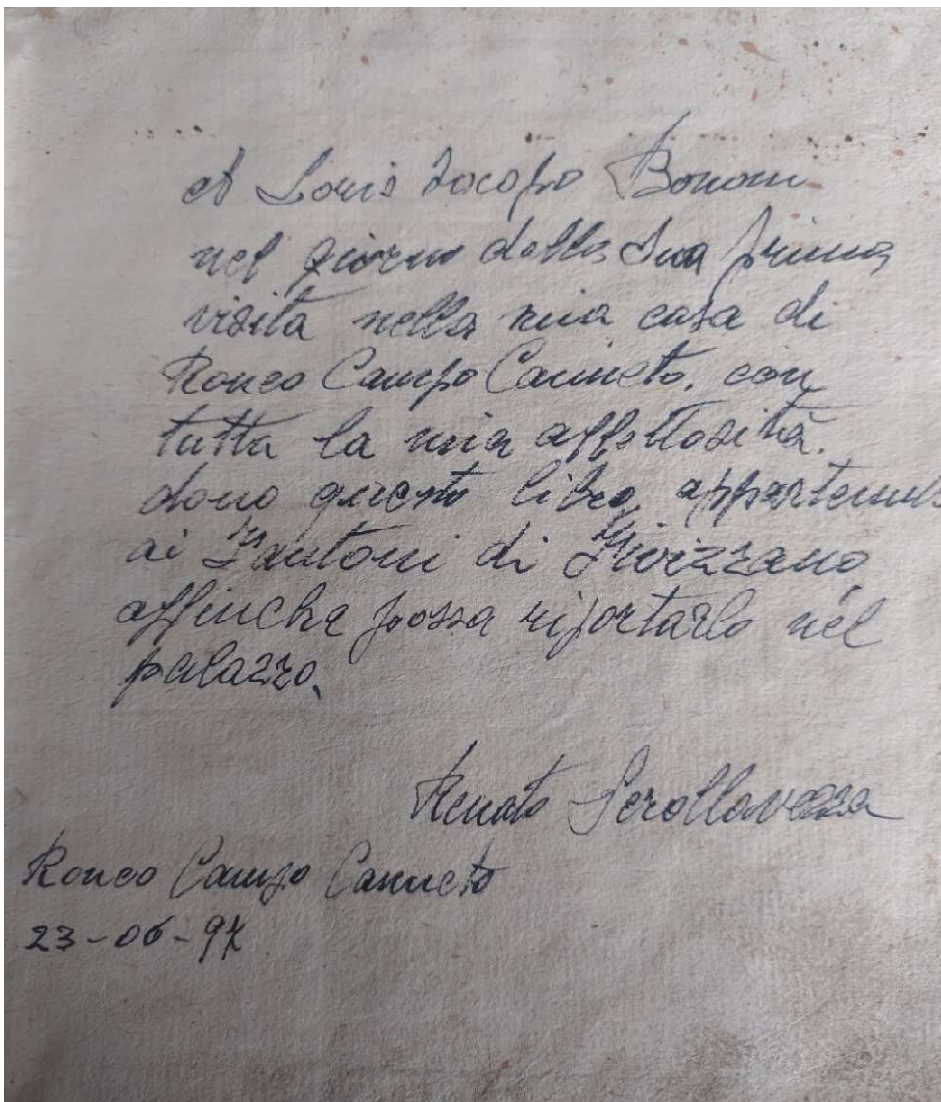 A Loris Jacopo Bononi
nel giorno della Sua prima
visita nella mia casa di
Ronco Campo Canneto, con
tutta la mia affettosità.
dono questo libro, appartenuto
ai Fantoni di Fivizzano,
affinché possa riportarlo nel
palazzo.
Renato Scrollavezza
Ronco Campo Canneto
23-06-97